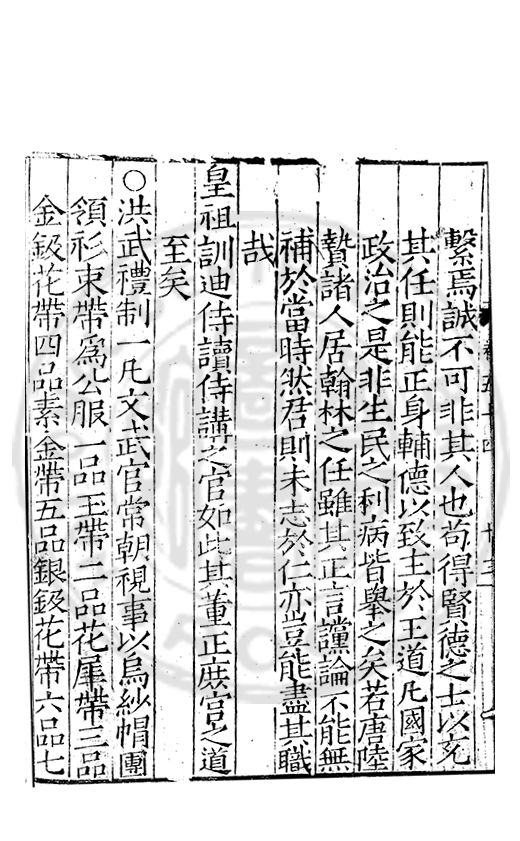 繫焉誠不可非其人也苟得賢德之士以充
其任則能正身輔德以致主於王道凡國家
政治之是非生民之利病皆舉之矣若唐陸
贄諸人居翰林之任雖其正言讜論不能無
補於當時然君則未志於仁亦豈能盡其職
哉
皇祖訓迪侍讀侍講之官如此其董正庶官之道
至矣
○洪武禮制一凡文武官常朝視事以烏紗帽團
領衫束帶爲公服一品玉帶二品花犀帶三品
金鈒花帶四品素金帶五品銀鈒花帶六品七